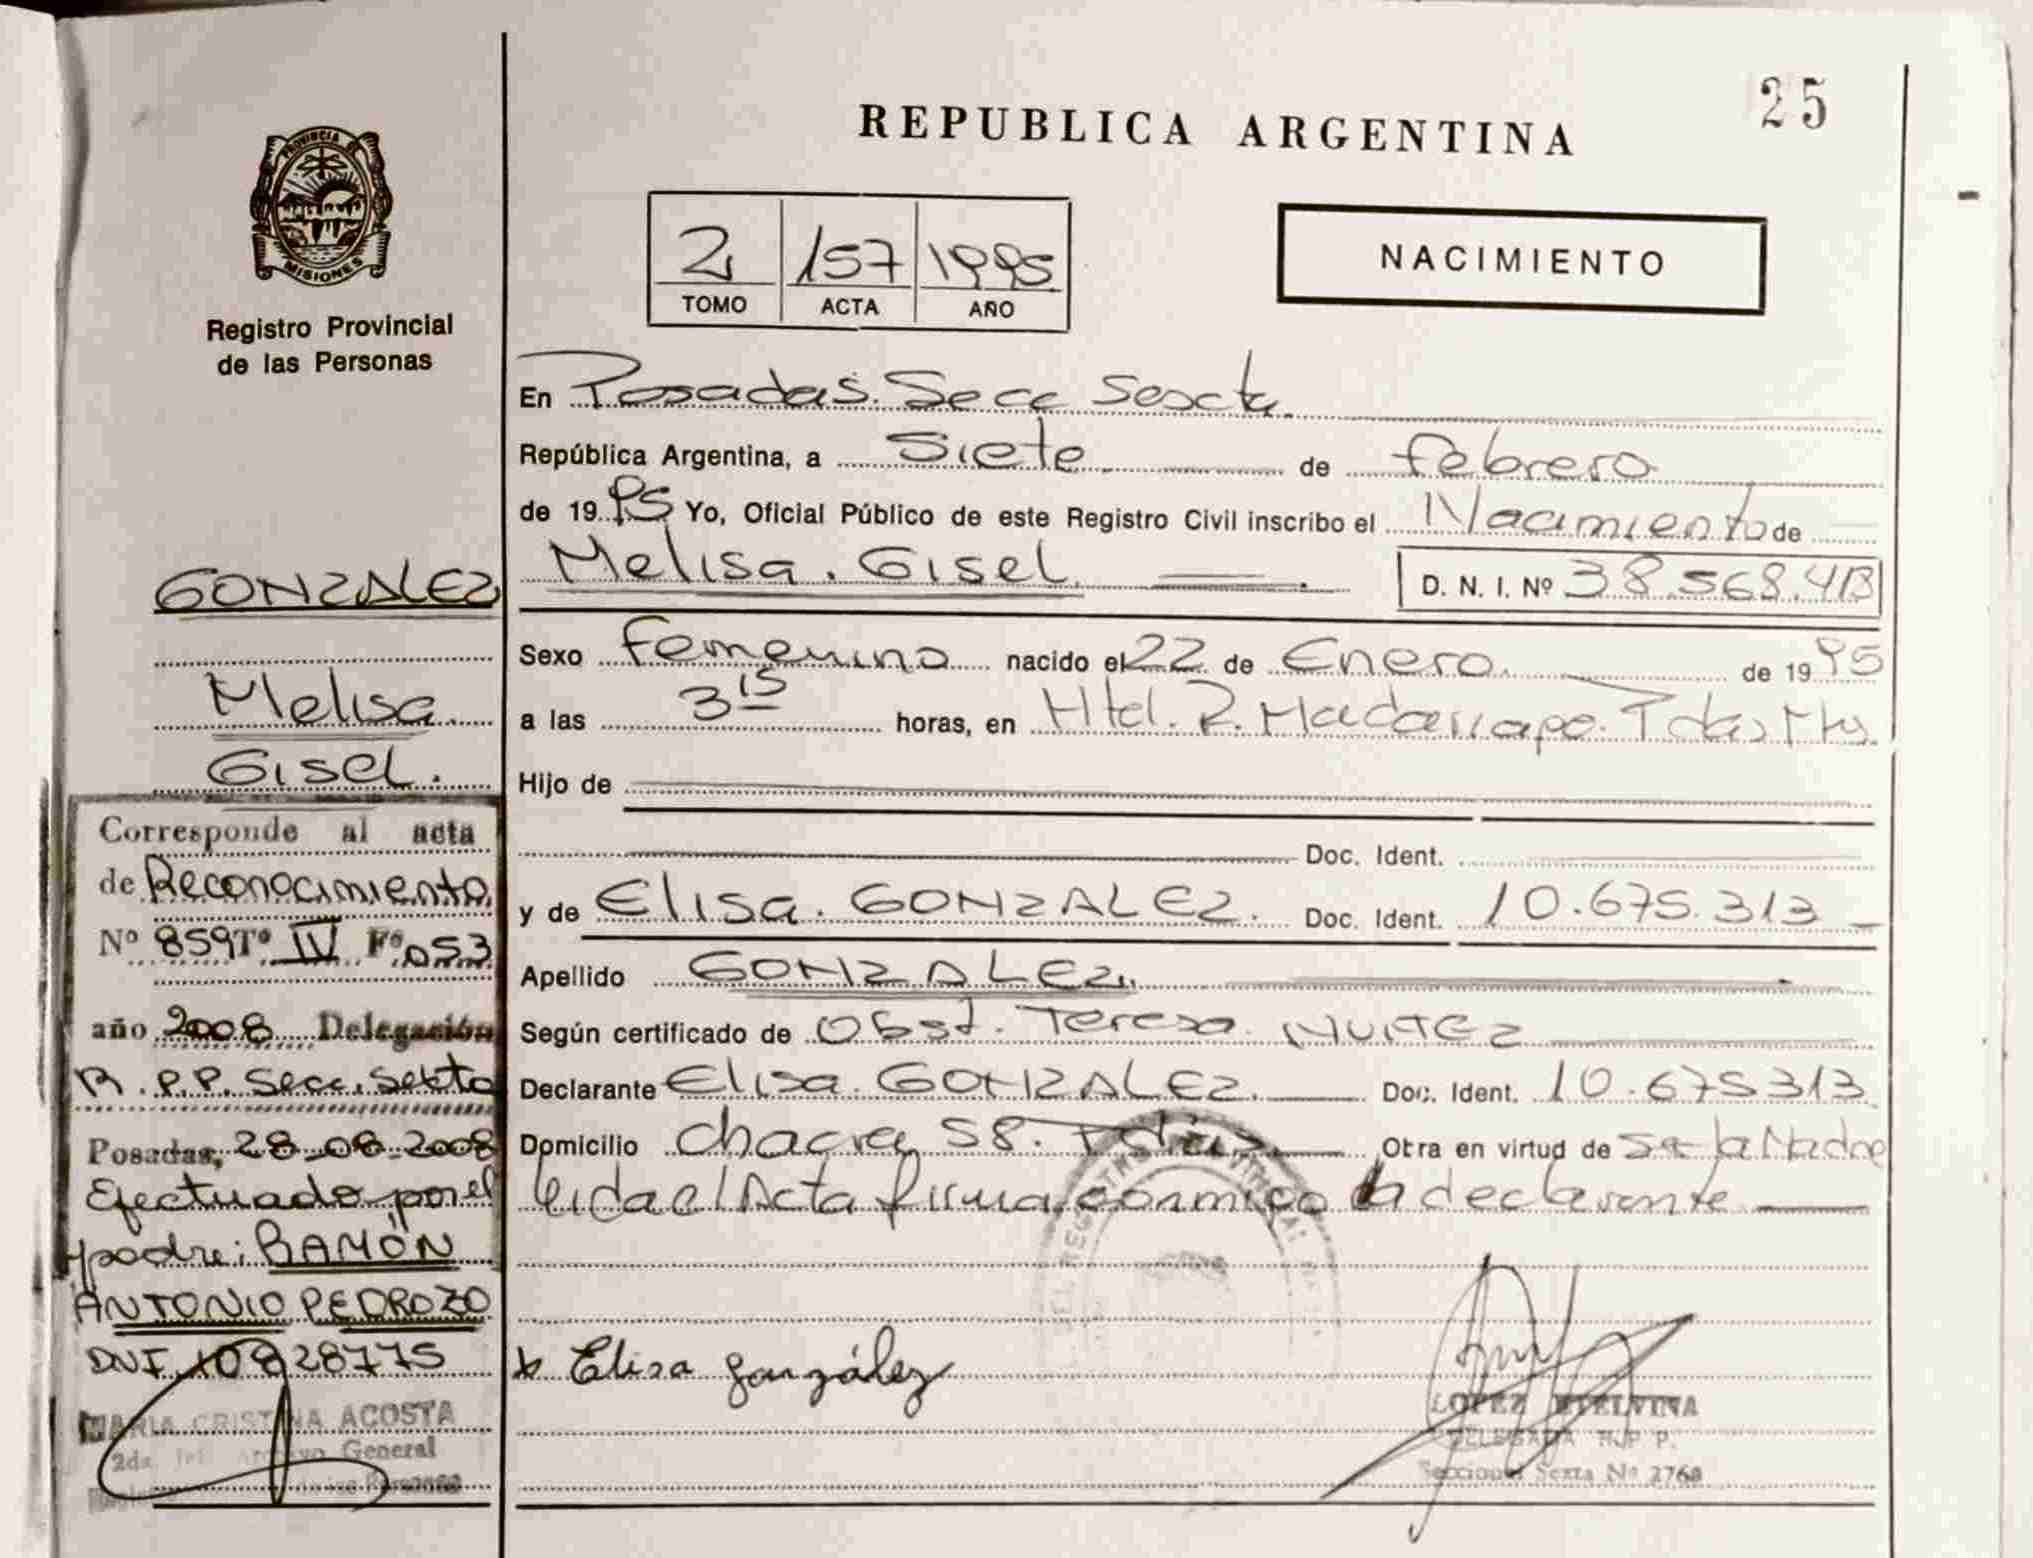 25
REPUBLICA ARGENTINA
PROVINCIA DE
MISIONES
Registro Provincial
de las Personas
2 157 1995
TOMO ACTA AÑO
NACIMIENTO
En Posadas. Secc Sexta.
República Argentina, a Siete de febrero
de 1995 Yo, Oficial Público de este Registro Civil inscribo el Nacimiento de
Melisa. Gisel. D. N. I. Nº 38.568.413
Sexo Femenino nacido el 22 de Enero. de 1995
a las 3 15 horas, en Htal. R. Madariaga. Pdas Ms.
Hijo de
Doc. Ident.
y de Elisa. GONZALEZ. Doc. Ident. 10.675.313
Apellido GONZALEZ.
Según certificado de Obst. Teresa NUÑEZ
Declarante Elisa. GONZALEZ. Doc. Ident. 10.675313
Domicilio Chacra 58. Pdas Otra en virtud de Ser la Madre
leida el Acta firma conmigo la declarante
x Elisa González
LOPEZ ETELVINA
DELEGADA R.P P.
Seccional Sexta Nº 2768
GONZALEZ
Melisa
Gisel.
Corresponde al acta
de Reconocimiento
Nº 859 Tº IV Fº 053
año 2008 Delegación
R.P.P. Secc. Sexta
Posadas, 28-08-2008
Efectuado por el
padre: RAMÓN
ANTONIO PEDROZO
DNI 10828775
MARIA CRISTINA ACOSTA
2da. General